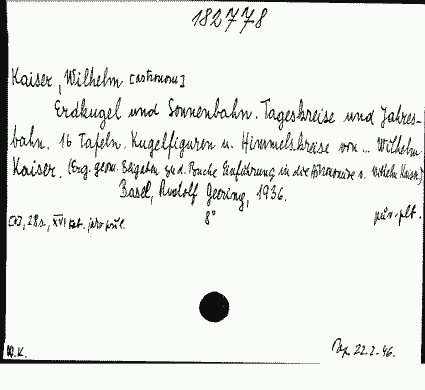 182778
Kaiser, Wilhelm [astronom]
Erdkugel und Sonnenbahn. Tageskreise und Jahres-
bahn. 16 Tafeln. Kugelfiguren u. Himmelskreise von ... Wilhelm
Kaiser. (Erg. geom. Beigaben zu d. Buche Einführung in die Astronomie v. Wilhelm Kaiser)
Basel, Rudolf Geering, 1936.
[2], 28 s., XVI 8°
22.2.46.